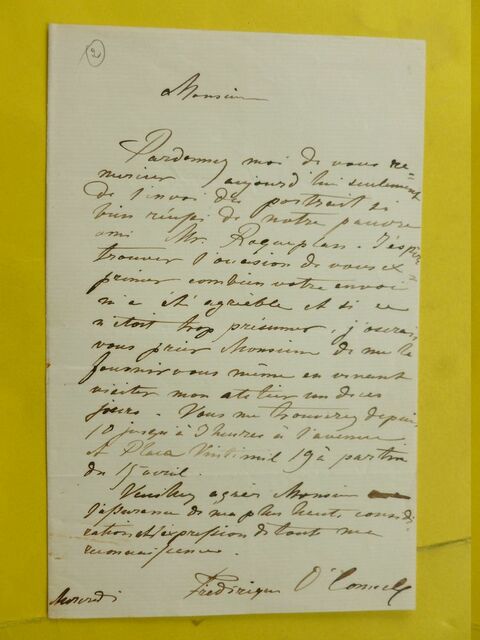 2
Monsieur
Pardonnez moi de vous re=
mercier aujourd'hui seulement
de l'envoi du portrait si
bien réussi de notre pauvre
ami Mr. Roqueplan. J'espère
trouver l'occasion de vous ex=
primer combien votre envoi
m'a été agréable et si ce
n'était trop présumer, j'oserais
vous prier Monsieur de me la
fournir vous même en venant
visiter mon atelier un de ces
jours. Vous me trouverez depuis
10 jusqu'à 3 heures à l'avenue
et Place Vintimil 19 à partir
du 15 avril.
Veuillez agréer Monsieur
l'assurance de ma plus haute consi dé
ration et l'expression de toute ma
reconnaissance.
Mercredi Frédérique O'Connell